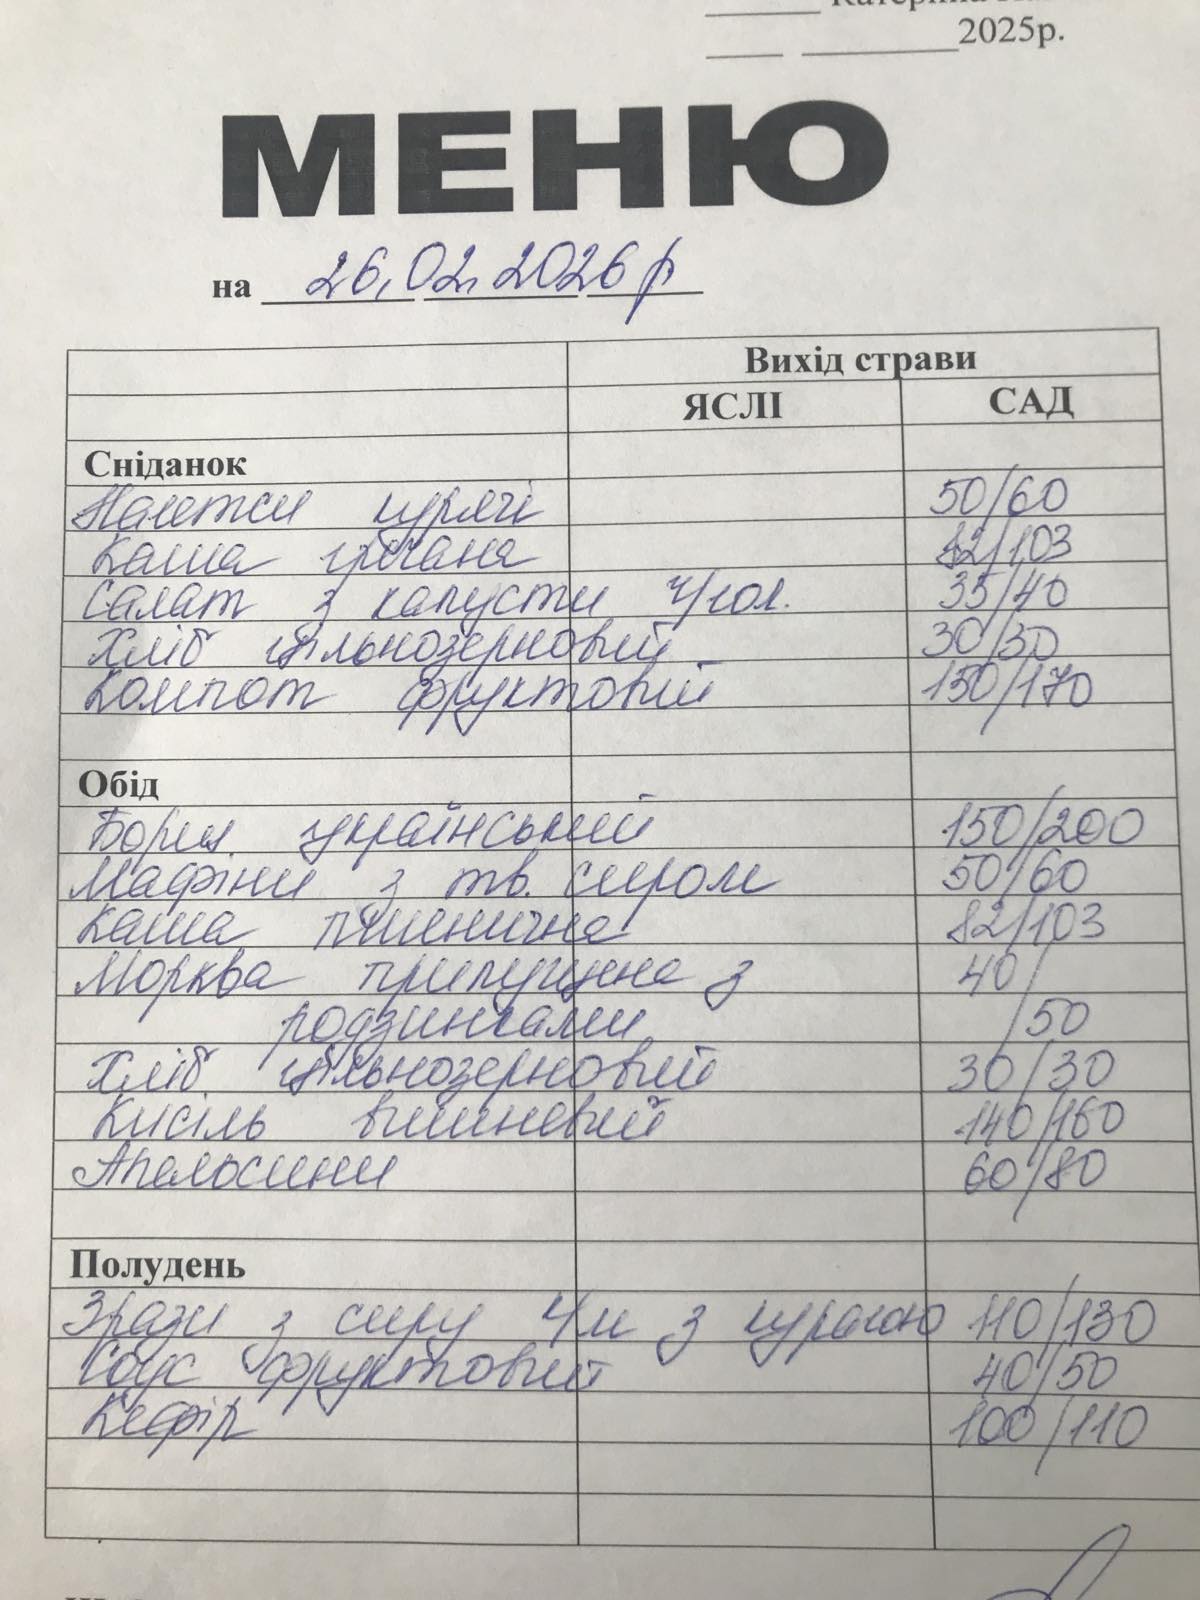 Катерина
2025р.
МЕНЮ
на 26.02.2026 р
Вихід страви
ЯСЛІ САД
Сніданок
Нагетси курячі 50/60
Каша гречана 82/103
Салат з капусти 30/40
Хліб цільнозерновий 30/30
Компот фруктовий 150/170
Обід
Борщ український 150/200
Мафіни з тв. сиром 50/60
Каша пшенична 82/103
Морква припущена з 40/
родзинками /50
Хліб цільнозерновий 30/30
Кисіль вишневий 140/160
Апельсини 60/80
Полудень
Зрази з сиру к/м з курагою 110/130
Соус фруктовий 40/50
Кефір 100/110